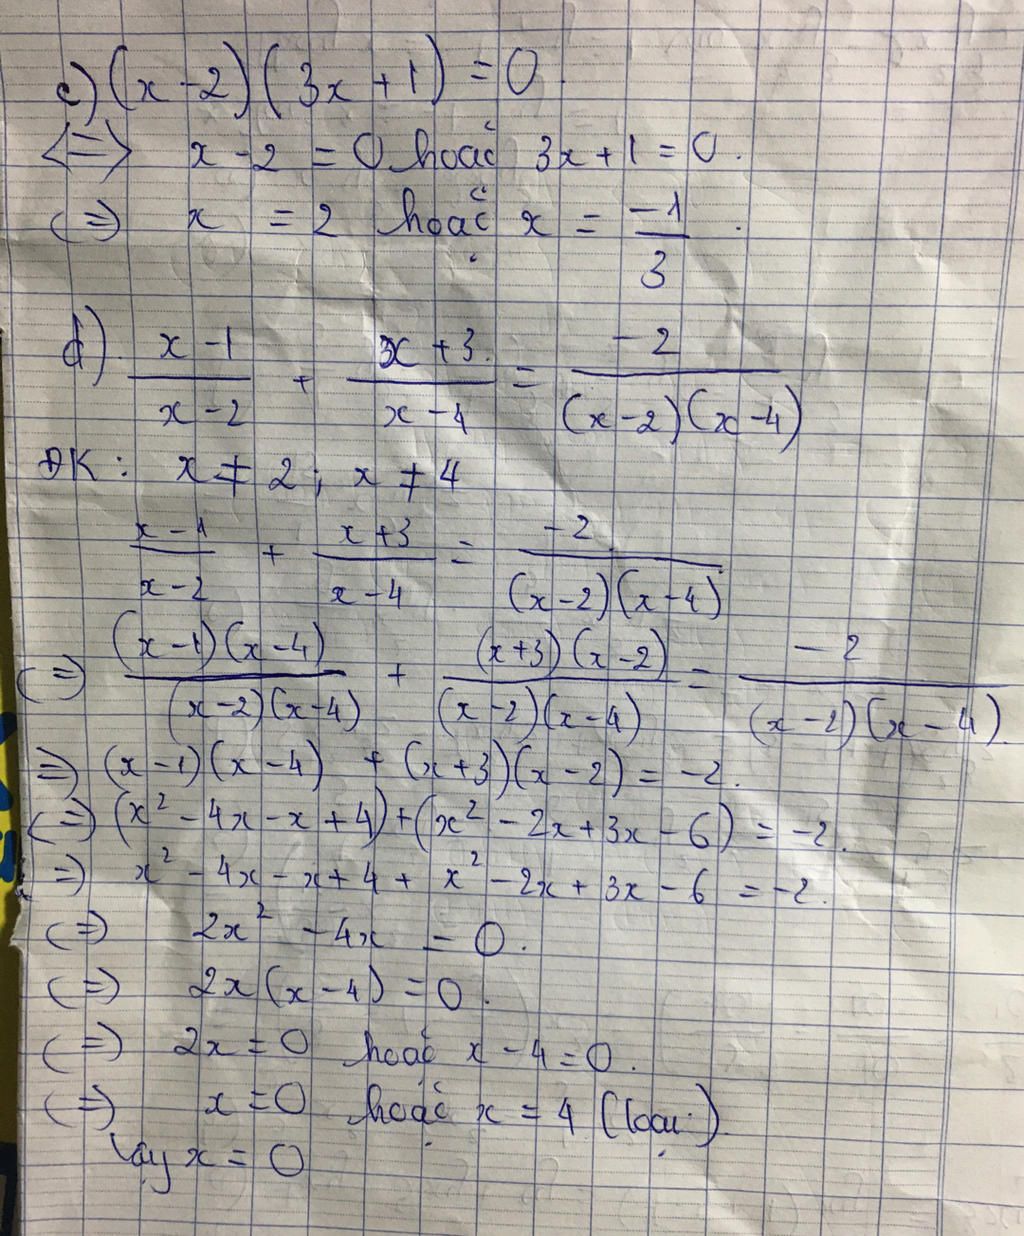 c) (x-2)(3x+1) = 0.
<=> x-2 = 0 hoặc 3x+1 = 0.
<=> x = 2 hoặc x = -1/3.
d) (x-1)/(x-2) + (x+3)/(x-4) = -2/((x-2)(x-4))
ĐK: x ≠ 2; x ≠ 4
(x-1)/(x-2) + (x+3)/(x-4) = -2/((x-2)(x-4))
<=> ((x-1)(x-4))/((x-2)(x-4)) + ((x+3)(x-2))/((x-2)(x-4)) = -2/((x-2)(x-4))
=> (x-1)(x-4) + (x+3)(x-2) = -2.
<=> (x² - 4x - x + 4) + (x² - 2x + 3x - 6) = -2.
<=> x² - 4x - x + 4 + x² - 2x + 3x - 6 = -2.
<=> 2x² - 4x = 0.
<=> 2x(x-4) = 0.
<=> 2x = 0 hoặc x - 4 = 0.
<=> x = 0 hoặc x = 4 (loại).
Vậy x = 0